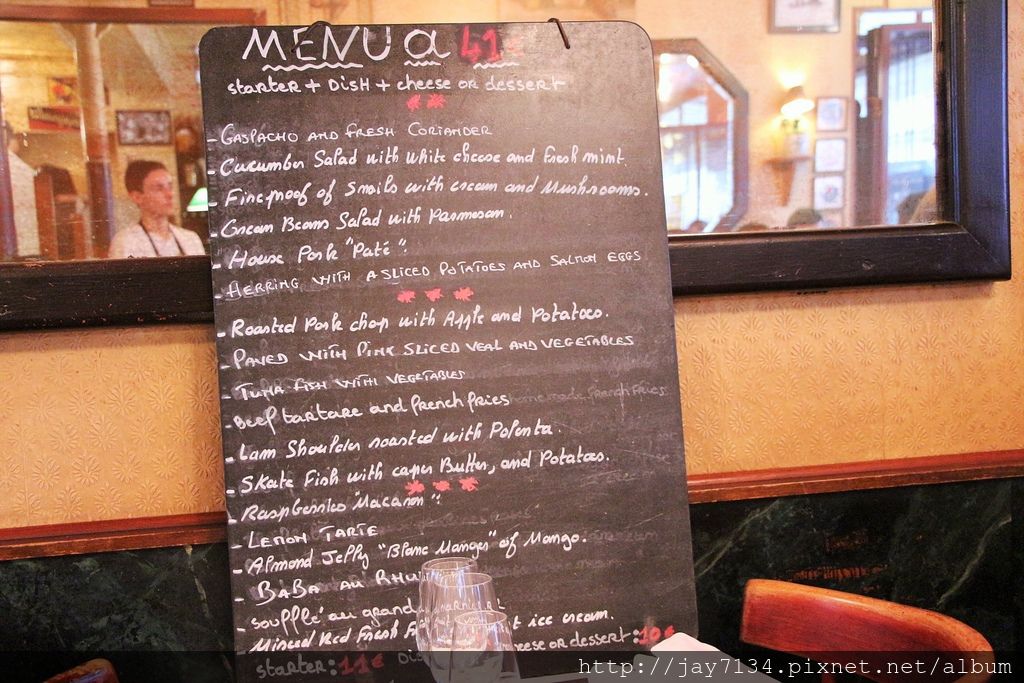 MENU à 41€
starter + Dish + cheese or dessert
- GASPACHO AND FRESH CORIANDER
- Cucumber Salad with white cheese and fresh mint.
- Fineproof of Snails with cream and Mushrooms.
- Green Beans Salad with Parmesan.
- House Pork "Paté".
- HERRING WITH A SLICED POTATOES AND SALMON EGGS
- Roasted Pork chop with Apple and Potatoes.
- PAVED WITH PINK SLICED VEAL AND VEGETABLES
- TUNA FISH WITH VEGETABLES
- Beef tartare and french fries
- Lam Shoulder roasted with Polenta.
- Skate Fish with caper Butter, and Potatoes.
- Raspberries "Macaron".
- LEMON TARTE
- Almond Jelly "Blanc Manger" of Mango.
- BABA AU
- soufflé au grand
- Minced Red Fresh ice cream.
starter: 11€ cheese or dessert: 10€
http://jay7134.pixnet.net/album